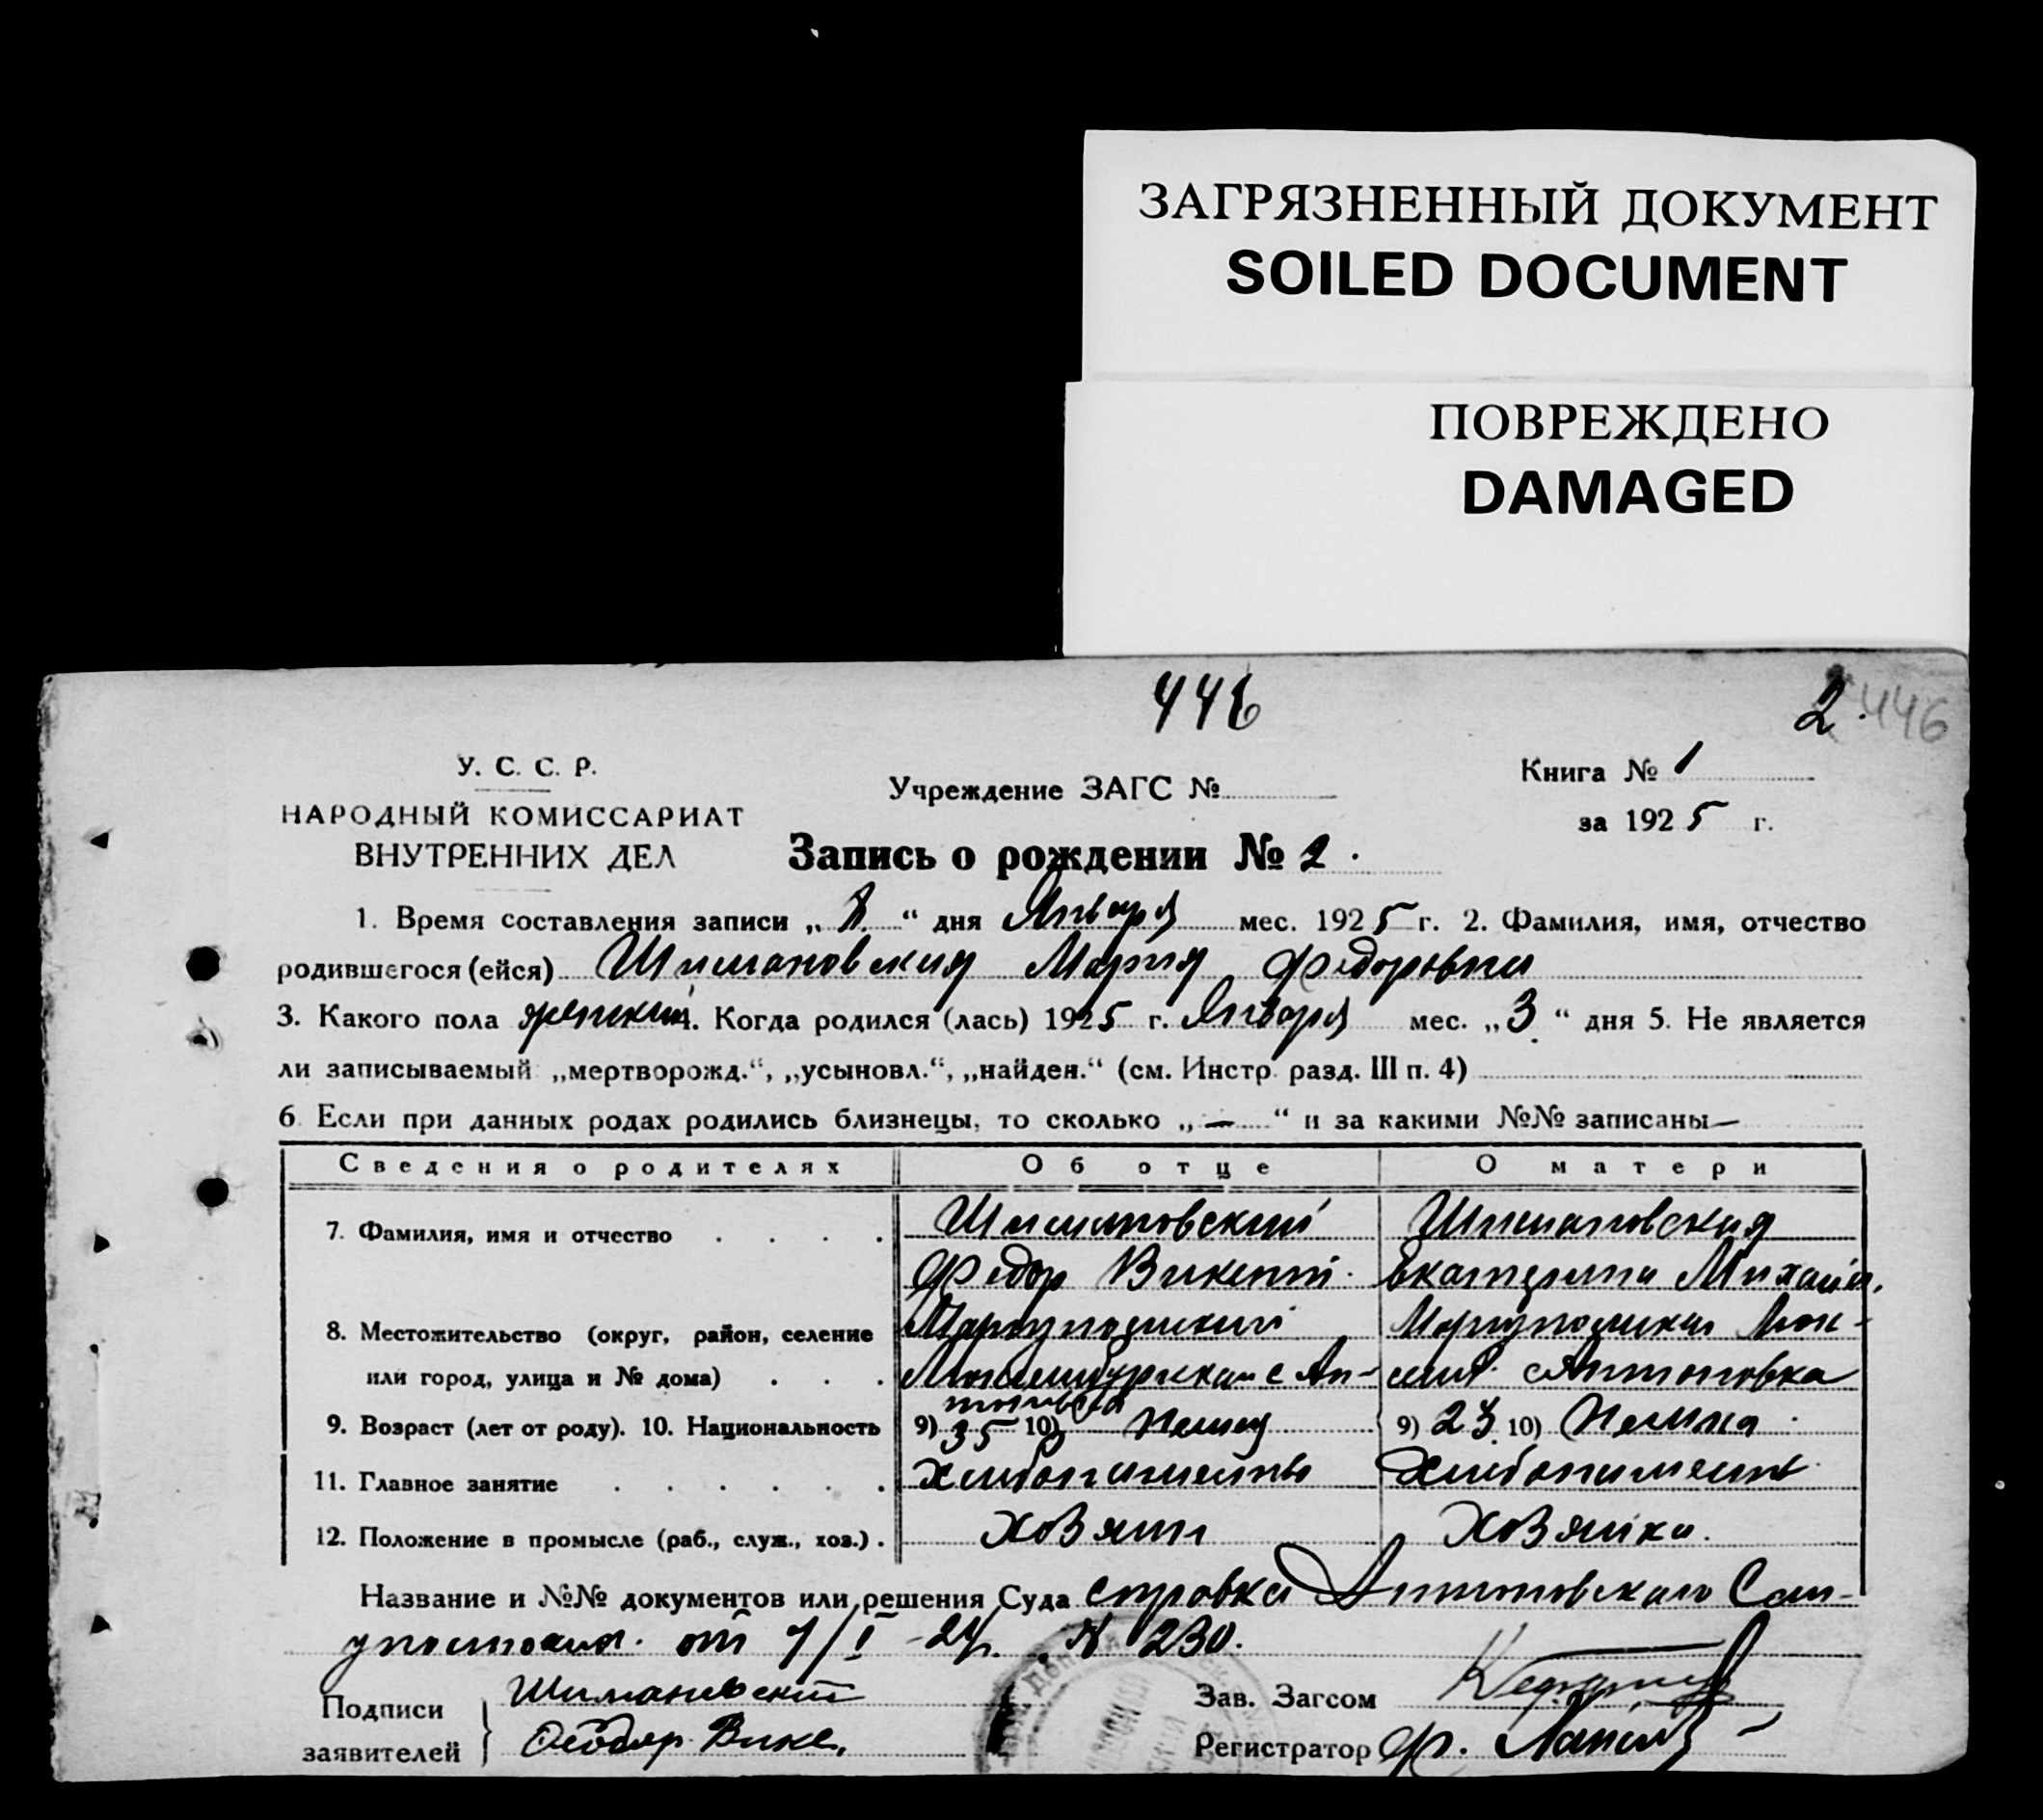 ЗАГРЯЗНЕННЫЙ ДОКУМЕНТ
SOILED DOCUMENT
ПОВРЕЖДЕНО
DAMAGED
446
2. 446
У. С. С. Р.
НАРОДНЫЙ КОМИССАРИАТ
ВНУТРЕННИХ ДЕЛ
Учреждение ЗАГС №
Книга № 1
за 1925 г.
Запись о рождении № 2.
1. Время составления записи „8“ дня Января мес. 1925 г. 2. Фамилия, имя, отчество
родившегося (ейся) Шимановская Мария Федоровна
3. Какого пола женский 4. Когда родился (лась) 1925 г. Января мес. „3“ дня 5. Не является
ли записываемый „мертворожд.“, „усыновл.“, „найден.“ (см. Инстр. разд. III п. 4)
6. Если при данных родах родились близнецы, то сколько „—“ и за какими №№ записаны —
Сведения о родителях Об отце О матери
7. Фамилия, имя и отчество . . . . Шимановский Шимановская
Федор Викент. Екатерина Михайл.
8. Местожительство (округ, район, селение Мариупольский Мариупольский Люк-
или город, улица и № дома) . . . Люксембургский с Ан- семб. с Антоновка
тоновка
9. Возраст (лет от роду). 10. Национальность 9) 35 10) Немец 9) 23 10) Немка
11. Главное занятие . . . . . . Хлебопашество Хлебопашеств.
12. Положение в промысле (раб., служ., хоз.) . Хозяин Хозяйка.
Название и №№ документов или решения Суда справка Антоновского Сель-
от 7/I-24г. № 230.
Подписи заявителей } Шимановский
Феодор Вике.
Зав. Загсом
Регистратор Ф.